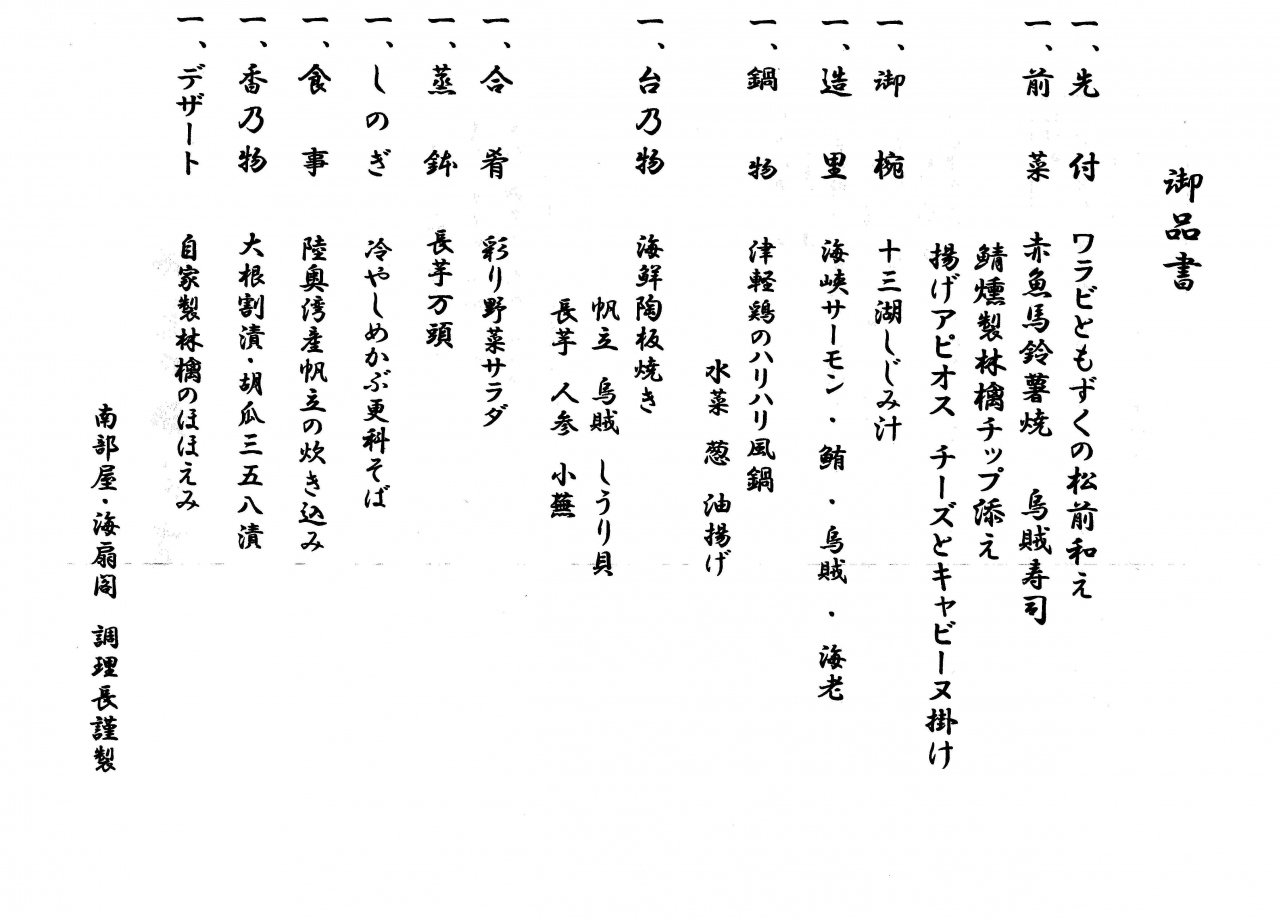 御品書
一、先付 ワラビともずくの松前和え
一、前菜 赤魚馬鈴薯焼 烏賊寿司
鯖燻製林檎チップ添え
揚げアピオス チーズとキャビーヌ掛け
一、御椀 十三湖しじみ汁
一、造里 海峡サーモン・鮪・烏賊・海老
一、鍋物 津軽鶏のハリハリ風鍋
水菜 葱 油揚げ
一、台乃物 海鮮陶板焼き
帆立 烏賊 しうり貝
長芋 人参 小蕪
一、合肴 彩り野菜サラダ
一、蒸鉢 長芋万頭
一、しのぎ 冷やしめかぶ更科そば
一、食事 陸奥湾産帆立の炊き込み
一、香乃物 大根割漬・胡瓜三五八漬
一、デザート 自家製林檎のほほえみ
南部屋・海扇閣 調理長謹製